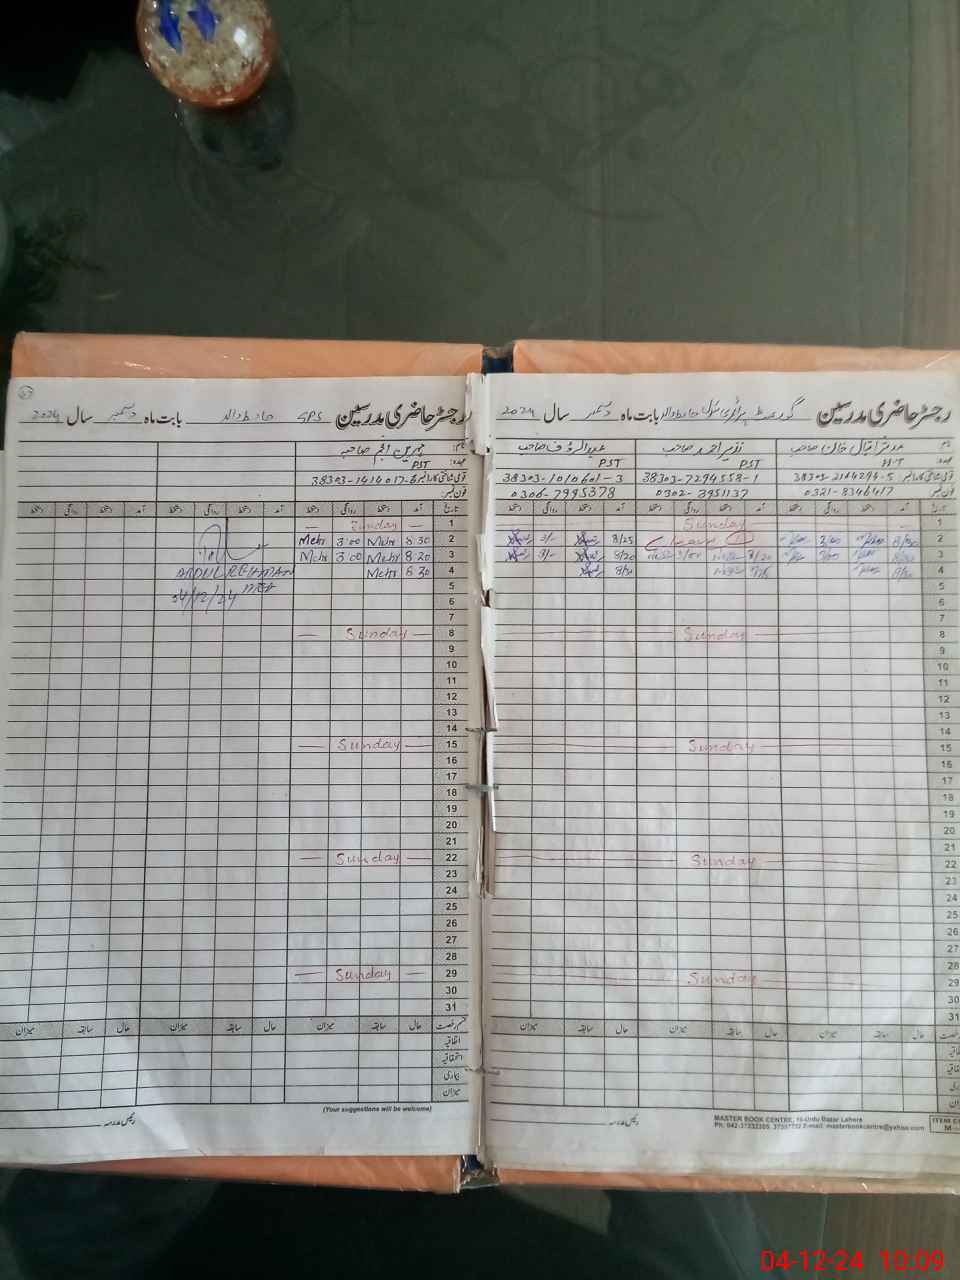 رجسٹر حاضری مدرسین گورنمنٹ پرائمری سکول بابت ماہ دسمبر سال 2024
نام: مدثر اقبال خان صاحب نذیر احمد صاحب عبدالرؤف صاحب
عہدہ: H.T PST PST
قومی شناختی کارڈ نمبر 38303-2104294-5 38303-7294558-1 38303-1010601-3
فون نمبر: 0321-8346417 0302-3951137 0306-7995378
تاریخ آمد دستخط روانگی دستخط آمد دستخط روانگی دستخط آمد دستخط روانگی دستخط
1 Sunday
2 8/25
3 3/00 8/20 8/20
4
5
6
7
8 Sunday
9
10
11
12
13
14
15 Sunday
16
17
18
19
20
21
22 Sunday
23
24
25
26
27
28
29 Sunday
30
31
حال سابقہ میزان حال سابقہ میزان حال سابقہ میزان
رئیس مدرسہ
MASTER BOOK CENTRE, 16-Urdu Bazar Lahore
Ph: 042-37232205, E-mail: masterbookcentre@yahoo.com
رجسٹر حاضری مدرسین GPS بابت ماہ دسمبر سال 2024
نام: مہرین انجم صاحبہ
عہدہ: PST
قومی شناختی کارڈ نمبر 38303-1414017-6
فون نمبر:
تاریخ آمد دستخط روانگی دستخط آمد دستخط روانگی دستخط آمد دستخط روانگی دستخط
1 Sunday
2 8:30 Mehr 3:00 Mehr
3 8:20 Mehr 3:00 Mehr
4 8:30 Mehr
ABDUL REHMAN
MEA
5
04/12/24
6
7
8 Sunday
9
10
11
12
13
14
15 Sunday
16
17
18
19
20
21
22 Sunday
23
24
25
26
27
28
29 Sunday
30
31
قسم رخصت حال سابقہ میزان حال سابقہ میزان حال سابقہ میزان
اتفاقیہ
استحقاقیہ
بیماری
میزان
(Your suggestions will be welcome)
رئیس مدرسہ
04-12-24 10:09